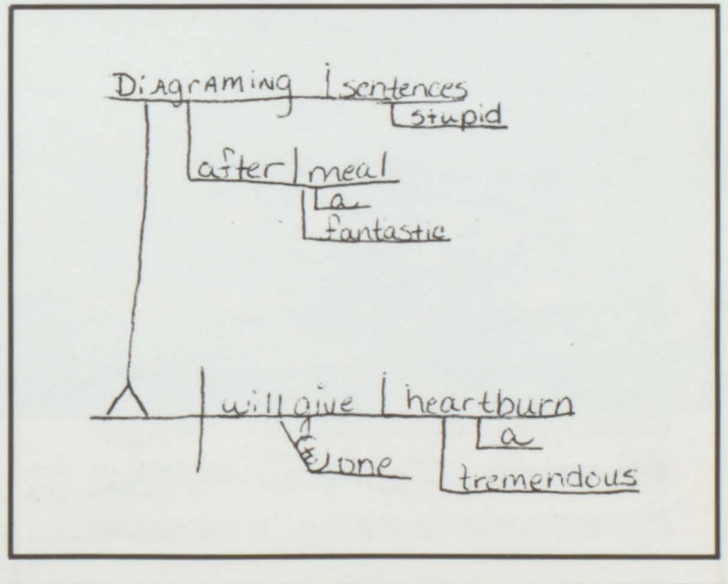 DiAgrAMiNg sentences
stupid
after meal
a
fantastic
will give heartburn
a
one
tremendous